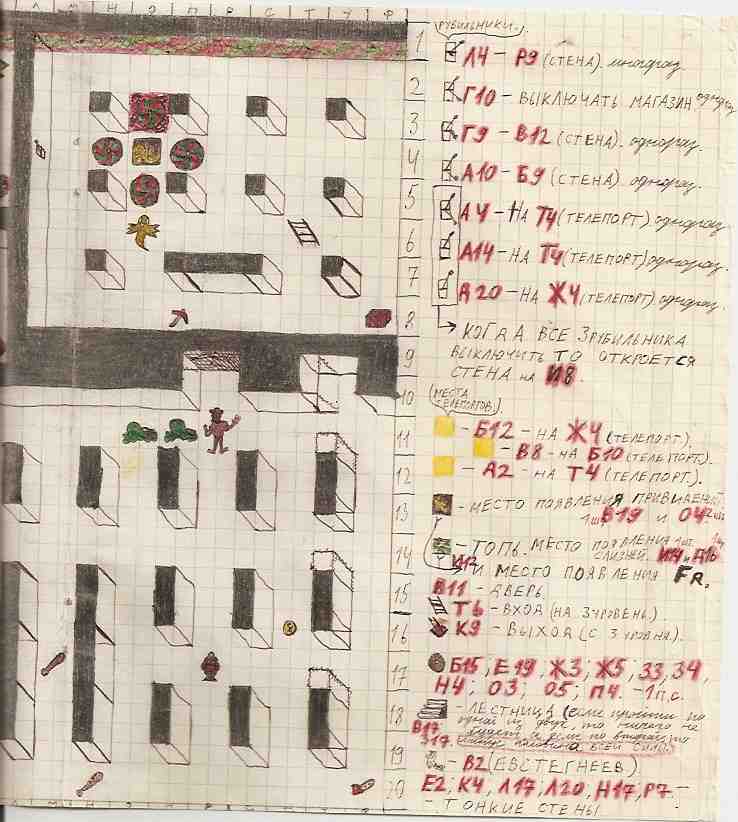 Л М Н О П Р С Т У Ф
(РУБИЛЬНИКИ.
1
Л4 - Р9 (СТЕНА). многораз
2
Г10 - ВЫКЛЮЧАТЬ МАГАЗИН однораз
3
Г9 - В12 (СТЕНА). однораз.
4
А10 - Б9 (СТЕНА). однораз.
5
А4 - НА Т4 (ТЕЛЕПОРТ) однораз
6
А14 - НА Т4 (ТЕЛЕПОРТ) однораз.
7
А20 - НА Ж4 (ТЕЛЕПОРТ). однораз
8
КОГДА ВСЕ 3 РУБИЛЬНИКА
9
ВЫКЛЮЧИТЬ ТО ОТКРОЕТСЯ
СТЕНА НА И8.
10
(МЕСТА
ТЕЛЕПОРТОВ).
11
- Б12 - НА Ж4 (ТЕЛЕПОРТ).
- В8 - НА Б10 (ТЕЛЕПОРТ).
12
- А2 - НА Т4 (ТЕЛЕПОРТ).
13
- МЕСТО ПОЯВЛЕНИЯ ПРИВИВЕНИЙ
1шт В19 И О4 2шт
14
- ТОПЬ. МЕСТО ПОЯВЛЕНИЯ
СЛИЗНЕЙ.
И МЕСТО ПОЯВЛЕНИЯ FR.
15
В11 - ДВЕРЬ.
Т6 - ВХОД (НА 3 УРОВЕНЬ.)
16
К9 - ВЫХОД (С 3 УРОВНЯ.)
17
Б15; Е19; Ж3; Ж5; З3, З4,
Н4; О3; О5; П4. - 1 п.с.
18
- ЛЕСТНИЦА (если пройти по
одной из двух, то ничего не
В17
будет а если по второй то
половина всей силы.)
19
- В2 (ЕВСТЕГНЕЕВ)
20
Е2; К4, Л17; Л20, Н17; Р7 -
- ТОНКИЕ СТЕНЫ